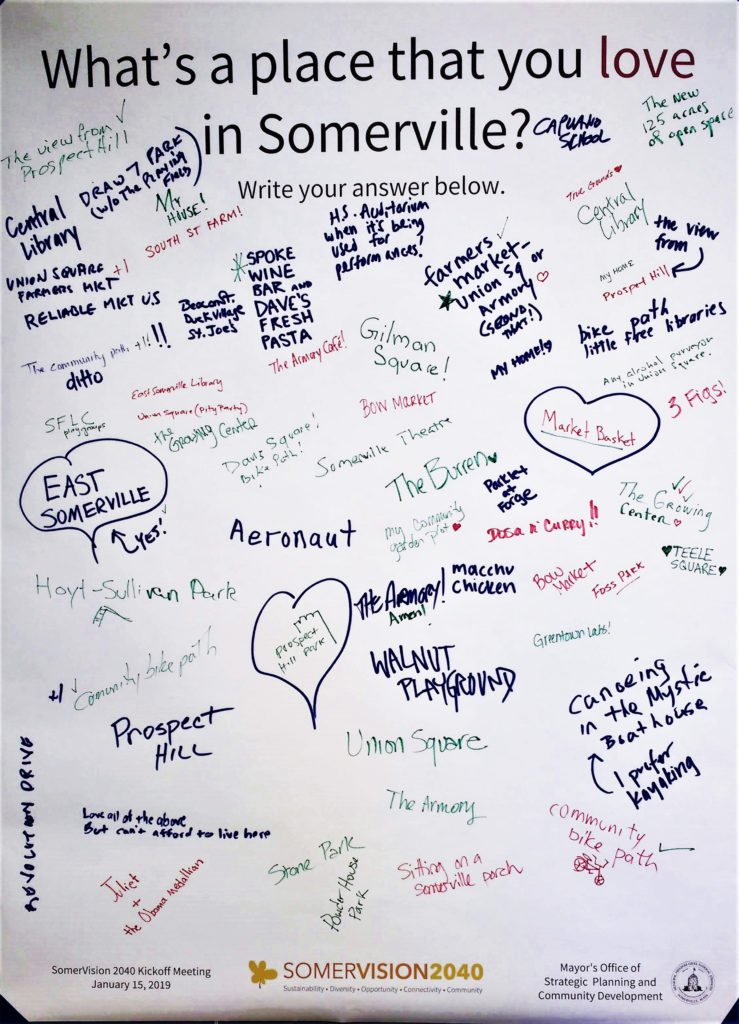 What's a place that you love
in Somerville?
Write your answer below.
The view from
Prospect Hill
DRAW 7 PARK
(w/o THE PLAYING
FIELDS)
CAPUANO
SCHOOL
The New
125 acres
of open space
Central
Library
My
HOUSE!
SOUTH ST FARM!
H.S. Auditorium
when it's being
used for
performances!
True Grounds
Central
Library
the view
from
MY HOME
Prospect Hill
UNION SQUARE +1
FARMERS MKT
RELIABLE MKT US
Beacon St.
Duck Village
St. Joe's
SPOKE
WINE
BAR AND
DAVE'S
FRESH
PASTA
farmers
market-
Union Sq or
Armory
(SECOND
THAT!)
The community path +1!!
!!
ditto
The Armory Café!
Gilman
Square!
MY HOME!
bike path
little free libraries
Any alcohol purveyor
in Union Square.
East Somerville Library
Union Square (Pity Party)
SFLC
playgroups
the Growing Center
BOW MARKET
Market Basket
3 Figs!
Davis Square!
Bike Path!
Somerville Theatre
EAST
SOMERVILLE
YES!
The Burren
Parklet
at
Forge
The Growing
Center
Aeronaut
my community
garden plot
DOSA N' CURRY!!
TEELE
SQUARE
Hoyt-Sullivan Park
THE ARMORY!
Amen!
macchu
chicken
Bow
Market
Foss Park
Prospect
Hill Park
Greentown Labs!
+1
Comunity bike path
WALNUT
PLAYGROUND
Canoeing
in the Mystic
Boathouse
I prefer
kayaking
Prospect
HILL
Union Square
REVOLUTION DRIVE
The Armory
Love all of the above
But can't afford to live here
community
bike path
Juliet
+
the Obama medallion
Stone Park
Powder House
Park
Sitting on a
Somerville porch
SomerVision 2040 Kickoff Meeting
January 15, 2019
SOMERVISION2040
Sustainability • Diversity • Opportunity • Connectivity • Community
Mayor's Office of
Strategic Planning and
Community Development